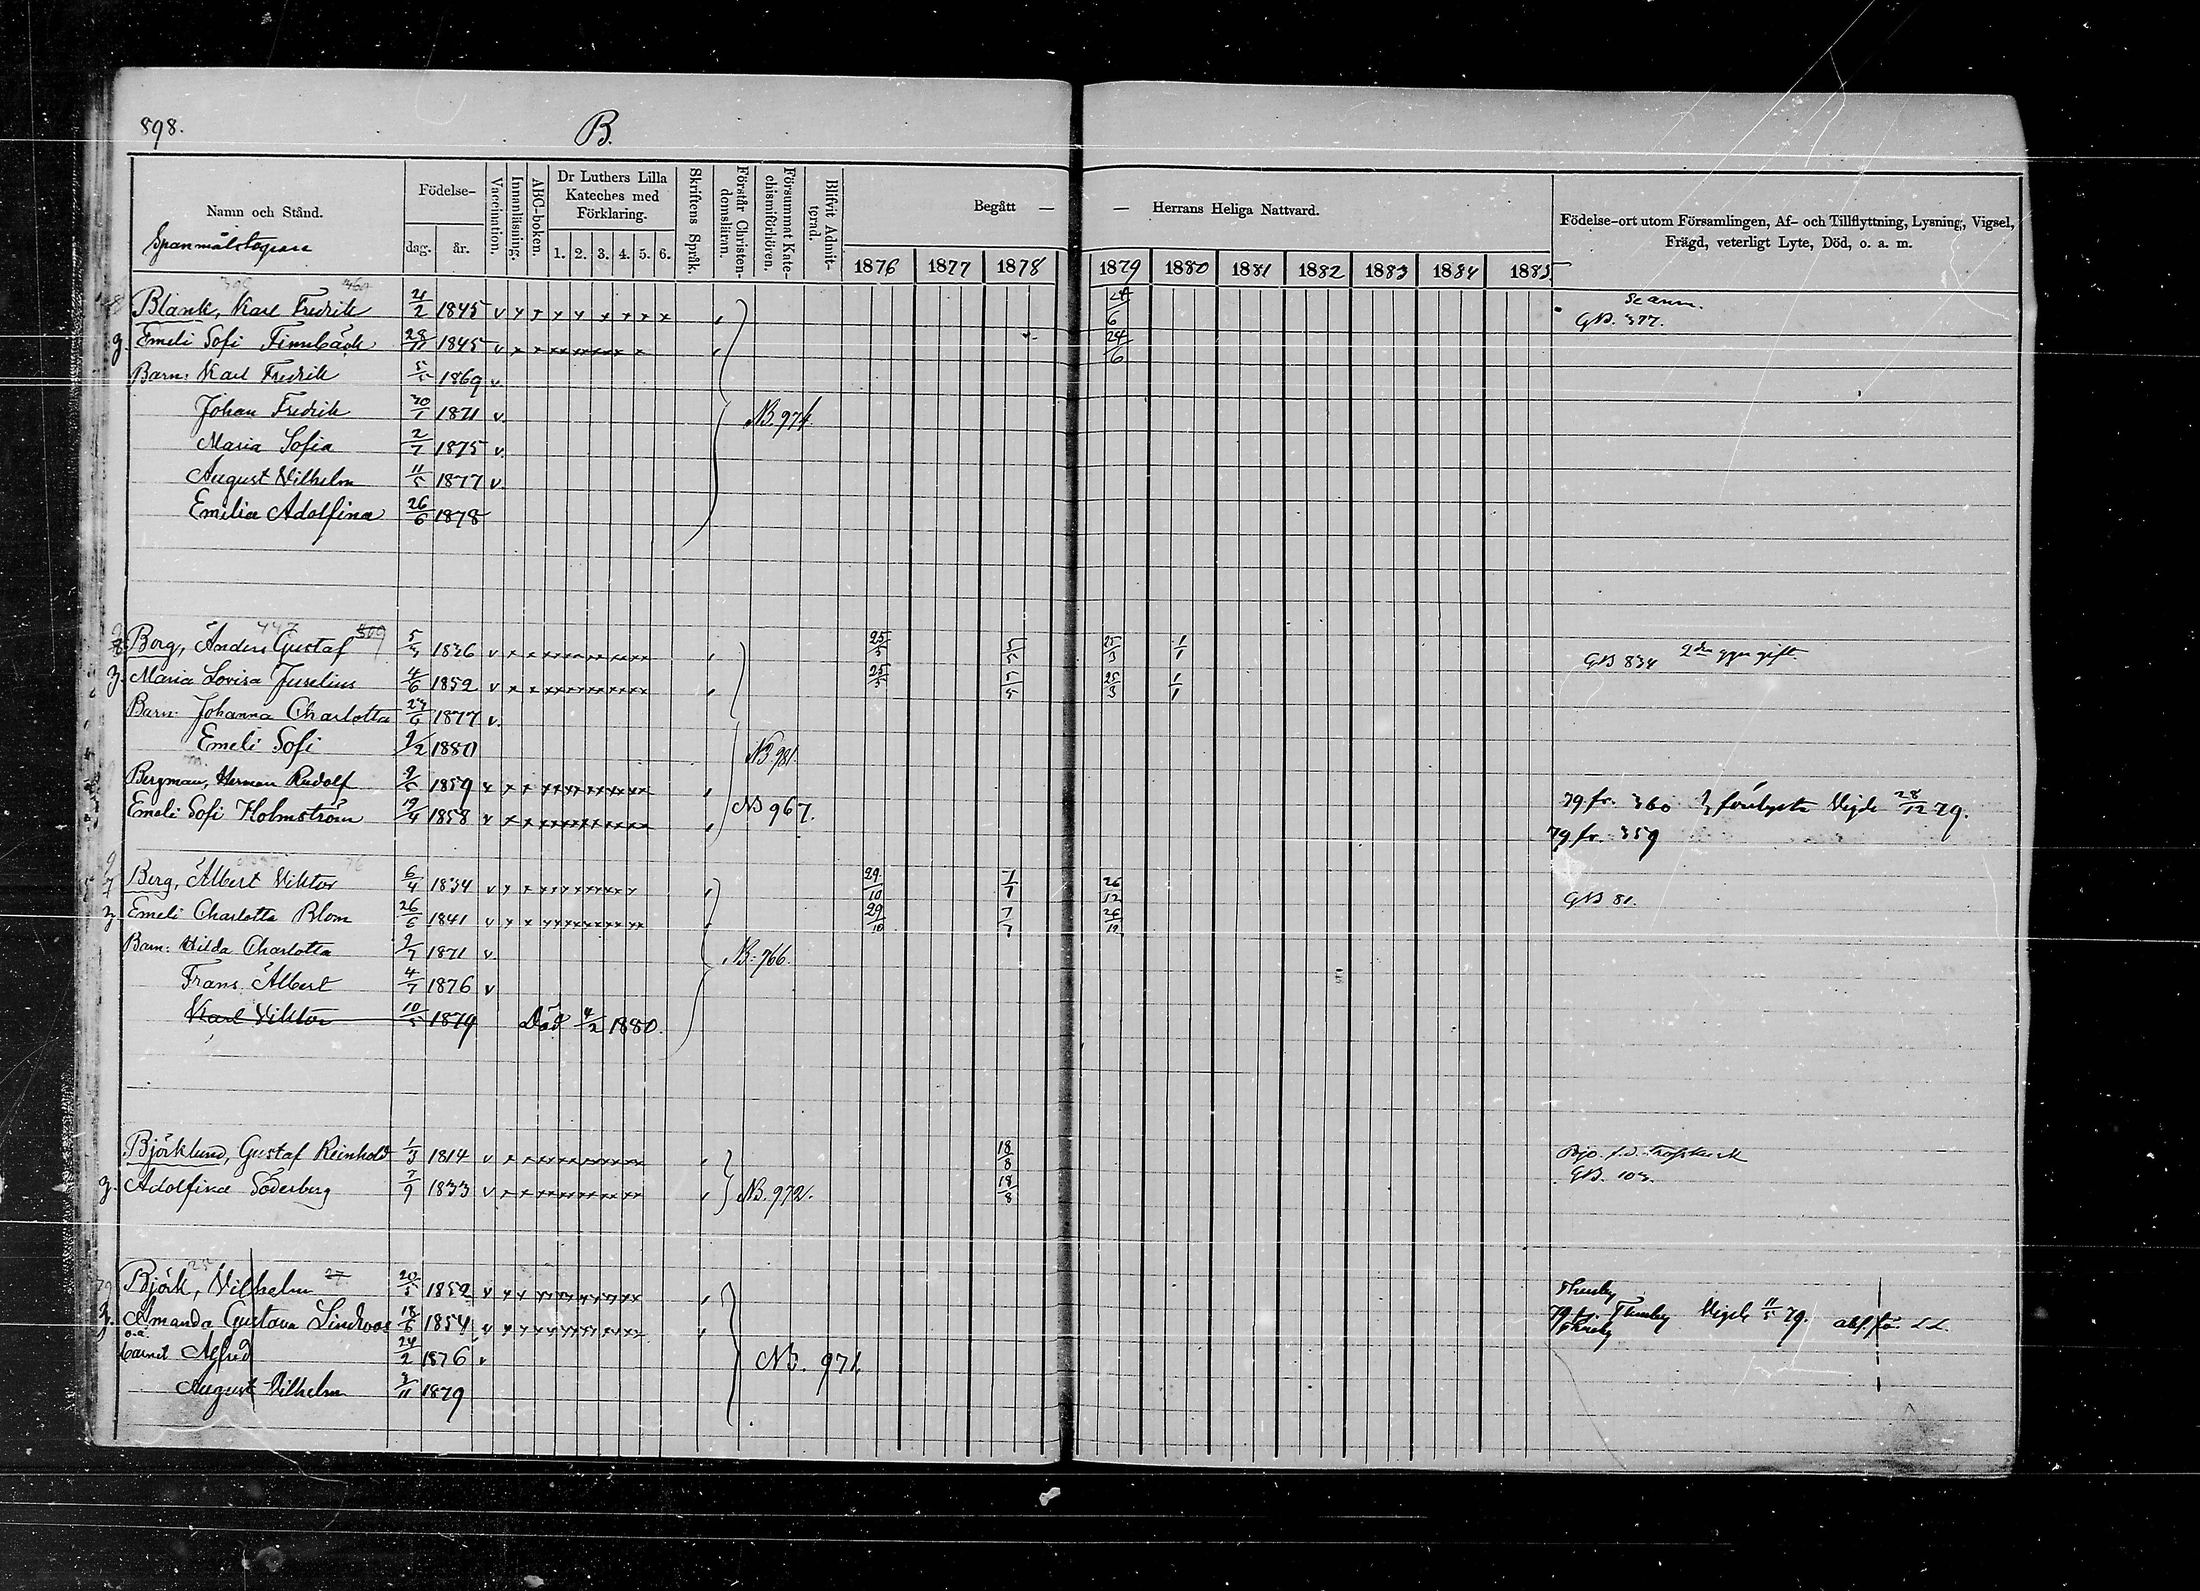 898.
B.
Namn och Stånd.
Födelse-
dag.
år.
Vaccination.
Innanläsning.
ABC-boken.
Dr Luthers Lilla
Kateches med
Förklaring.
1. 2. 3. 4. 5. 6.
Skriftens Språk.
Förstår Christen-
domsläran.
Försummat Kate-
chismiförhören.
Blifvit Admit-
terad.
Begått — — Herrans Heliga Nattvard.
1876 1877 1878 1879 1880 1881 1882 1883 1884 1885
Födelse-ort utom Församlingen, Af- och Tillflyttning, Lysning, Vigsel,
Frägd, veterligt Lyte, Död, o. a. m.
Blank, Karl Fredrik 1845 v
GB. 377.
Emeli Sofi 1845 v 24/6
Barn: Karl Fredrik 1869 v
Johan Fredrik 1871 v. NB. 974
Maria Sofia 2/7 1875 v.
August Vilhelm 11/5 1877 v.
Emilia Adolfina 26/6 1878
447 509
Borg, Anders Gustaf 1836 v 25/5 5/5 25/3 1/1 GB 834 2dra ggn gift.
Maria Lovisa Juselius 4/6 1852 v 25/5 5/5 25/3 1/1
Barn: Johanna Charlotta 1877 v.
Emeli Sofi 9/2 1880 NB. 981.
Bergman, Herman Rudolf 1859 v 79 fr. 360 Vigde 28/12 79.
Emeli Sofi Holmström 19/4 1858 v NB 967. 79 fr. 359
Berg, Albert Viktor 6/4 1834 v 29/10 26/12 GB 81.
Emeli Charlotta Blom 26/6 1841 v 29/10 7/7 26/12
Barn: Hilda Charlotta 9/7 1871 v NB: 966.
Frans Albert 4/7 1876 v
Karl Viktor 10/5 1879 Död 4/2 1880.
Björklund, Gustaf Reinhold 1/3 1814 v 18/8
Adolfina Söderberg 7/9 1833 v NB. 972. 18/8 GB. 103.
25 27
Björk, Vilhelm 20/5 1852 v Thusby
Amanda Gustava Lindroos 18/6 1854 v 79 fr. Thusby Vigde 11/5 79.
Thusby
o.ä.
barnet Alfred 24/2 1876 v NB. 971.
August Vilhelm 1879